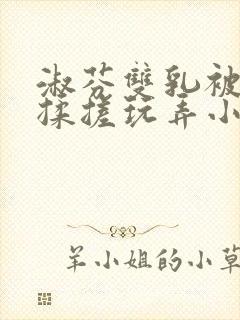 淑芬雙乳被
揉搓玩弄小
羊小姐的小草